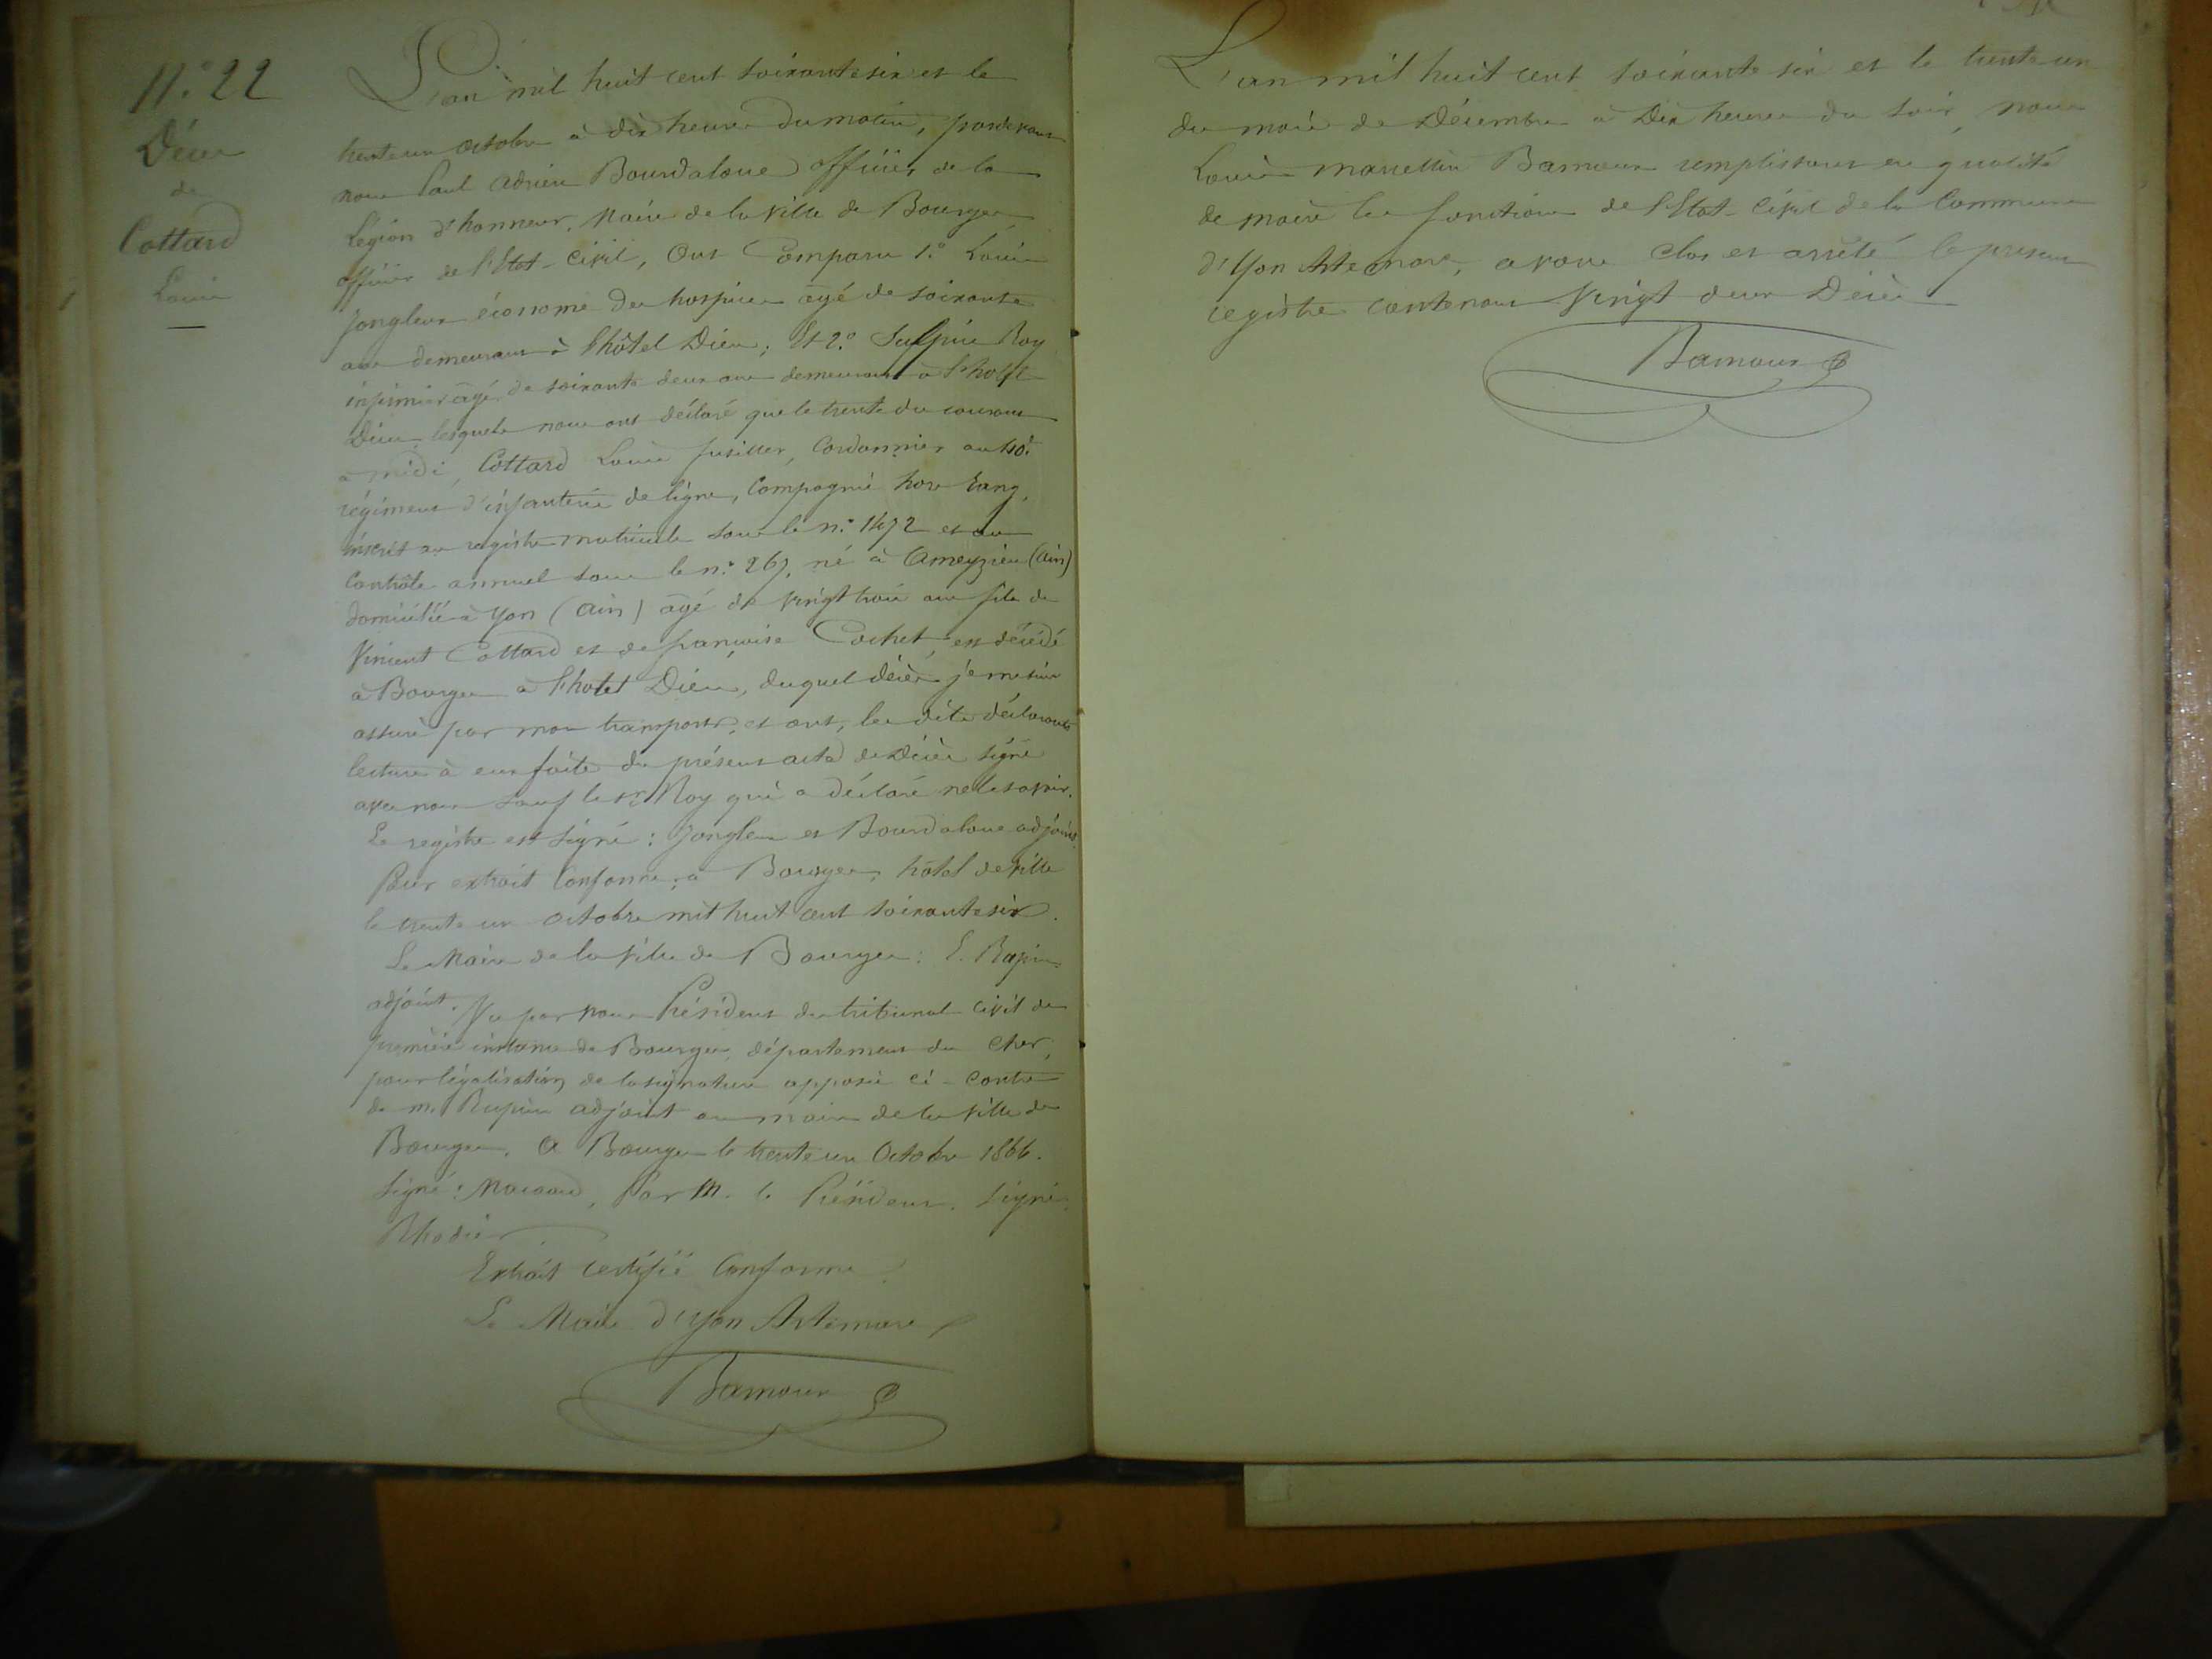 N.° 22
Décès
de
Cottard
Louis
L'an mil huit cent soixante six et le
trente un octobre à dix heures du matin, pardevant
nous Paul Adrien Bourdaloue officier de la
Légion d'honneur, Maire de la ville de Bourges
officier de l'Etat-civil, Ont Comparu 1.° Louis
Jongleux économe des hospices âgé de soixante
ans demeurant à l'hôtel Dieu; Et 2.° Sulpice Roy
infirmier âgé de soixante deux ans demeurant à l'hôtel
Dieu, lesquels nous ont déclaré que le trente du courant
à midi, Cottard Louis fusilier, Cordonnier au
régiment d'infanterie de ligne, Compagnie hors rang,
inscrit au registre matricule sous le n.° 1472 et au
Contrôle annuel sous le n.° 267, né à Ameyzieu (Ain)
domicilié à Yon (Ain) âgé de vingt trois ans fils de
Vincent Cottard et de françoise Cochet, est décédé
à Bourges à l'hotel Dieu, duquel décès je me suis
assuré par mon transport; et ont, les dits déclarants
lecture à eux faite du présent acte de Décès signé
avec nous sauf le sr. Roy qui a déclaré ne le savoir.
Le registre est signé: Jongleux et Bourdaloue adjoint.
Pour extrait Conforme, à Bourges, hôtel de ville
le trente un octobre mil huit cent soixante six.
Le Maire de la ville de Bourges: E. Rapin
adjoint. Vu par nous Président du tribunal civil de
première instance de Bourges, département du Cher,
pour légalisation de la signature apposée ci-contre
de m. Rapin adjoint au maire de la ville de
Bourges. A Bourges le trente un Octobre 1866.
Signé: Par M. le Président. Signé:
Rhodier
Extrait certifié Conforme.
Le Maire d'Yon Artemare
Bamoux
L'an mil huit cent soixante six et le trente un
du mois de Décembre à Dix heures du soir, nous
Louis marcellin Bamoux remplissant en qualité
de maire les fonctions de l'Etat-civil de la Commune
d'Yon Artemare, avons Clos et arrêté le présent
registre contenant Vingt deux Décès
Bamoux